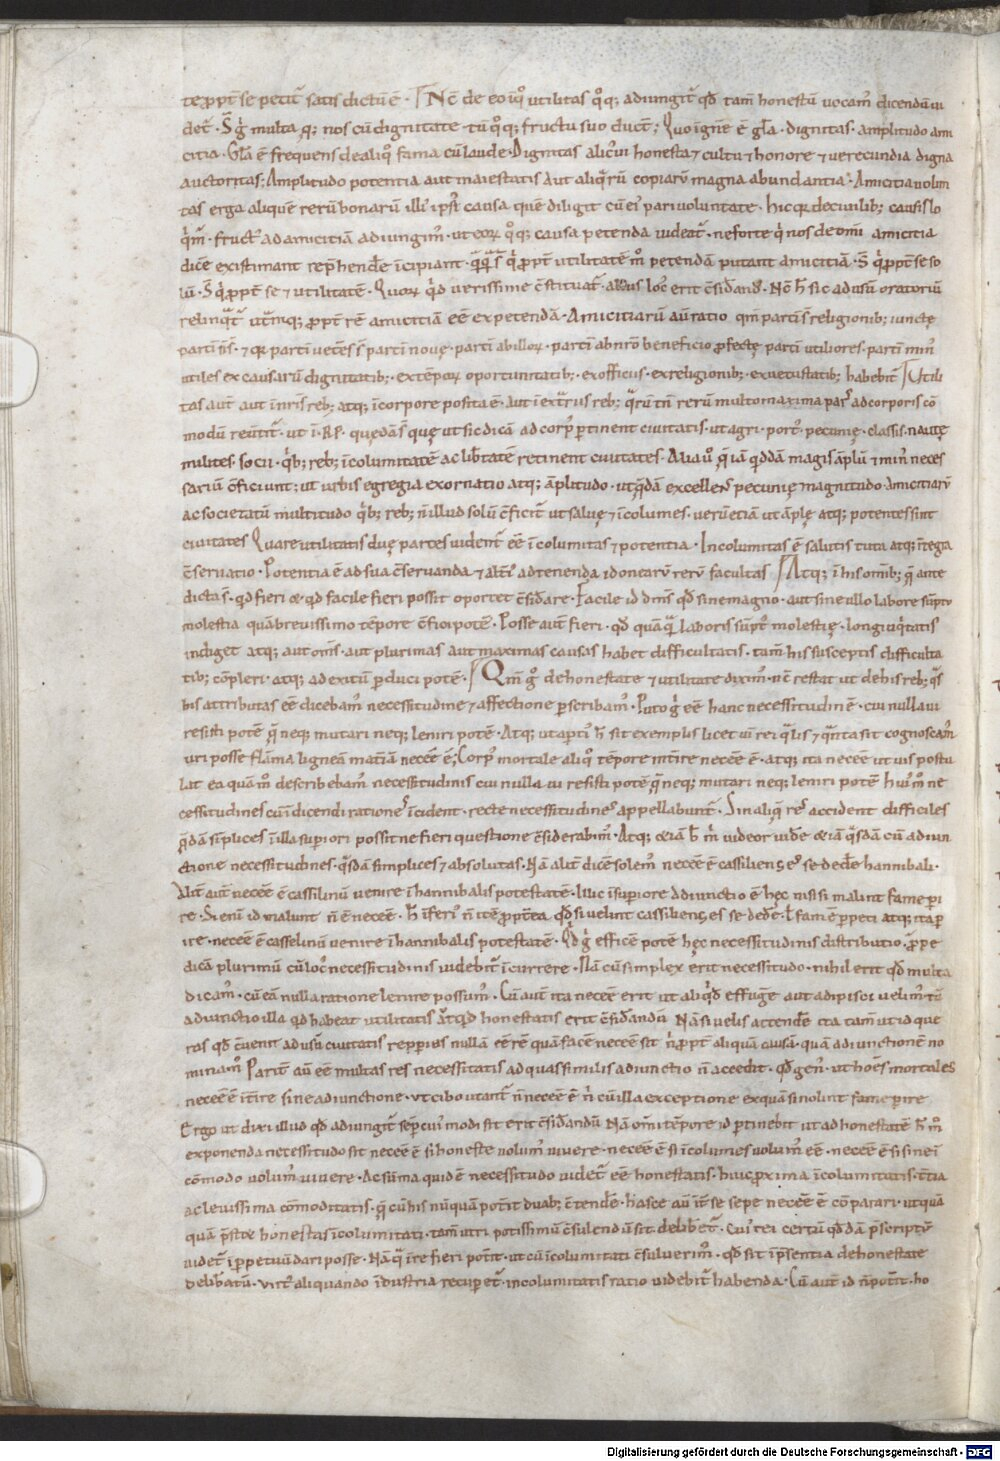 te ꝓpt̄ se petit᷑ satis dictū ē · Nc̄ de eo īq̊ utilitas q̊q; adiungit᷑ qd̄ tam̄ honestū uocam᷑ dicendū ui
det᷑ · S; g̊ multa q; nos cū dignitate tū q̊q; fructu suo duct̄; Quo ī gn̄e ē gl̄a · dignitas · amplitudo ami
citia · Gl̄a ē frequens de aliq̊ fama cū laude · Dignitas alicui honesta & cultu & honore & uerecundia digna
auctoritas; Amplitudo potentia aut maiestatis aut aliq̄rū copiarū magna abundantia · Amicitia uolun
tas erga aliquē rerū bonarū illi᷑ ipsi᷑ causa quē diligit cū ei᷑ pari uoluntate · hic qr̄ de ciuilib; causis lo
q̄m᷑ · fruct᷑ ad amicitiā adiungim᷑ · ut eoꝝ q̊q; causa petenda uideat᷑ · ne forte q̄ nos de om̄i amicitia
dicē existimant rep̄hendē īcipiant · q̄q̄ s̄t q̄ ꝓpt̄ utilitatē m̊ petendā putant amicitiā · S̄ q̄ ꝓpt̄ se so
lū · S̄ q̄ ꝓpt̄ se & utilitatē · Quoꝝ q̄d uerissime c̄stituat᷑ · alius loc᷑ erit c̄sidandi · Nc̄ h̄ sic ad usū oratoriū
relinq̄t᷑ utrūq; ꝓpt̄ rē amicitiā eē expetendā · Amicitiarū aū ratio qm̄ partī s̄ religionib; iunctę
partī n̄ s̄ · & qr̄ partī uet̄es s̄ partī nouę · partī ab illoꝝ · partī ab nr̄o beneficio ꝓfectę partī utiliores · partī min᷑
utiles ex causarū dignitatib; · ex tēpoꝝ oportunitatib; · ex officiis · ex religionib; ex uetustatib; habebit᷑ Utili
tas aut̄ aut in ris reb; atq; ī corpore posita ē · aut ī extraris reb; q̄rū tn̄ rerū multo maxima pars ad corporis cō
modū reūtit᷑ · ut ī · R·P· quędā s̄ quę ut sic dicā ad corp᷑ p̄tinent ciuitatis · ut agri · port᷑ · pecunię · classis · nautę
milites · socii · q̄b; reb; īcolumitatē ac lib̄tatē retinent ciuitates · Alia ū q̄ iā q̄ddā magis āplū & min᷑ neces
sariū c̄ficiunt; ut urbis egregia exornatio atq; āplitudo · ut q̄dā excellens pecunię magnitudo · amicitiarū
ac societatū multitudo q̄b; reb; n̄ illud solū c̄ficit᷑ ut saluę & īcolumes · uerū etiā ut āplę atq; potentes sint
ciuitates Quare utilitatis duę partes uident᷑ eē īcolumitas & potentia · Incolumitas ē salutis tuta atq; īntegra
c̄seruatio · Potentia ē ad sua c̄seruanda & alt̄i᷑ adtenenda idonearū rerū facultas Atq; ī his om̄ib; q̄ ante
dicta s̄ · qd fieri & qd facile fieri possit oportet c̄sid̄are · Facile id dm᷑ qd sine magno · aut sine ullo labore sūptu
molestia quā breuissimo tēpore c̄fici potē · Posse aut̄ fieri · qd̄ quāq̄ laboris sūpt᷑ molestię · longinq̄tatis
indiget atq; aut om̄s · aut plurimas aut maximas causas habet difficultatis · tam̄ his susceptis difficulta
tib; cōpleri · atq; ad exitū ꝑduci potē · Qm̄ g̊ de honestate & utilitate dixim᷑ · nc̄ restat ut de his reb; q̄s
his attributas eē dicebam᷑ necessitudine & affectione p̄scribam᷑ · Puto g̊ eē hanc necessitudinē · cui nulla ui
resisti potē q̄ neq; mutari neq; leniri potē · Atq; ut apti᷑ h̄ sit exemplis licet ui rei q̄lis & q̄nta sit cognoscam᷑
uri posse flāma ligneā mat̄iā necēē ē; Corp᷑ mortale aliq̊ tēpore int̄ire necēē ē · atq; ita necēē ut uis postu
lat ea quā m̊ describebam᷑ necessitudinis cui nulla ui resisti potē q̄ neq; mutari neq; leniri potē hui᷑ m̊ ne
cessitudines cū ī dicendi rationē īcident · recte necessitudines appellabunt᷑ · Sin aliq̄ res accident difficiles
q̄dā simplices ī illa supiori possit ne fieri questione c̄siderabim᷑ · Atq; etiā h̄ m̄ uideor uidē etiā q̄sdā cū adiun
ctione necessitudines · q̄sdā simplices & absolutas · Nā alit̄ dicē solem᷑ necēē ē cassilienses se dedē hannibali ·
Alit̄ aut̄ necēē ē cassilinū uenire ī hannibalis potestatē · Illic ī supiore adiunctio ē hęc nisi si malint fame ꝑi
re · Si enī id malunt n̄ ē necēē · h̄ īferi᷑ n̄ itē ꝓpt̄ea qd̄ si uelint cassilienses se dedē · ł famē ꝑpeti atq; ita ꝑ
ire · necēē ē casselinū uenire ī hannibalis potestatē · Qd g̊ efficē potē hęc necessitudinis distributio · ꝓpe
dicā plurimū cū loc᷑ necessitudinis uidebit᷑ īcurrere · Nā cū simplex erit necessitudo · nihil erit qd̄ multa
dicam᷑ · cū eā nulla ratione lenire possum᷑ · Cū aut̄ ita necēē erit ut aliq̄d effugē aut adipisci uelim᷑ tū
adiunctio illa qd habeat utilitatis aut qd honestatis erit c̄sid̄andū Nā si uelis attendē ita tam̄ ut id que
ras qd̄ c̄ueniat ad usū ciuitatis repp̄ies nullā eē rē quā facē necēē sit n̄ ꝓpt̄ aliquā causā · quā adiunctionē no
minam᷑ Parit̄ aū eē multas res necessitatis ad quas similis adiunctio n̄ accedit · qd̄ gen᷑ · ut hoēs mortales
necēē ē int̄ire sine adiunctione · ut cibo utant᷑ n̄ necēē ē n̄ cū illa exceptione ex quā si nolint fame ꝑire
Ergo ut dixi illud qd̄ adiungit᷑ sēp cui᷑ modi sit erit c̄sid̄andū Nā om̄i tēpore id ꝑtinebit ut ad honestatē h̄ m̊
exponenda necessitudo sit necēē ē si honeste volum᷑ uiuere · necēē ē si īcolumes volum᷑ eē · necēē ē si sine ī
cōmodo uolum᷑ uiuere · Ac sūma quidē necessitudo uidet᷑ eē honestatis · huic ꝓxima īcolumitatis · t̄tia
ac leuissima cōmoditatis · q̄ cū his nūquā potit duab; c̄tendē · hasce aū int̄ se sepe necēē ē cōparari · ut quā
quā p̄stet honestas īcolumitati · tam̄ utri potissimū c̄sulendū sit delib̄et᷑ · Cui᷑ rei certū q̄ddā p̄scriptū
uidet᷑ ī ꝑpetuū dari posse · Nā q̄ ī re fieri potit · ut cū īcolumitati c̄suluerim᷑ · qd̄ sit ī p̄sentia de honestate
delibatū · uirt᷑ aliquando īdustria recupet᷑ · incolumitatis ratio uidebit᷑ habenda · Cū aut̄ id n̄ potit · ho
Digitalisierung gefördert durch die Deutsche Forschungsgemeinschaft - DFG